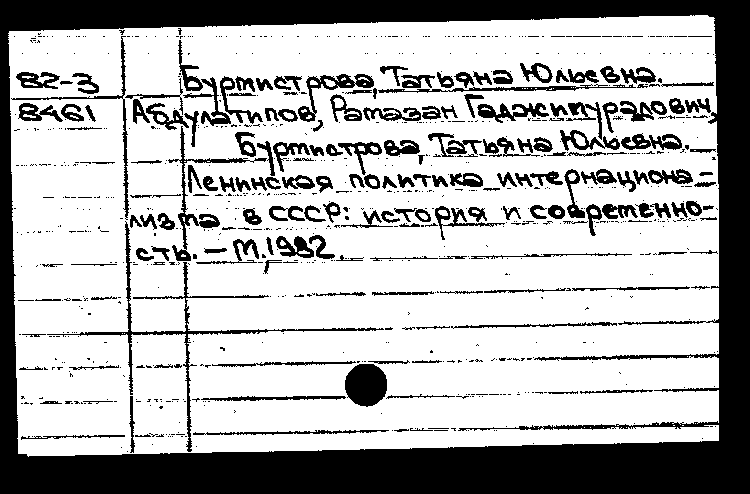 82-3 Бурмистрова, Татьяна Юльевна.
8461 Абдулатипов, Рамазан Гаджимурадович,
Бурмистрова, Татьяна Юльевна.
Ленинская политика интернациона-
лизма в СССР: история и современно-
сть. — М., 1982.